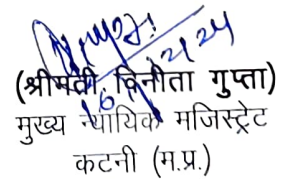 (श्रीमती विनीता गुप्ता)
मुख्य न्यायिक मजिस्ट्रेट
कटनी (म.प्र.)